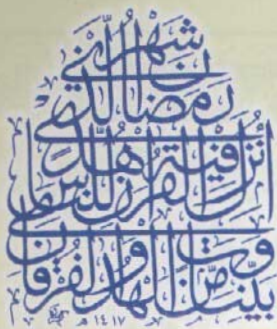 شهر
رمضان الذي
أنزل فيه القرآن هدى للناس
وبينات من الهدى والفرقان
١٤١٧ هـ